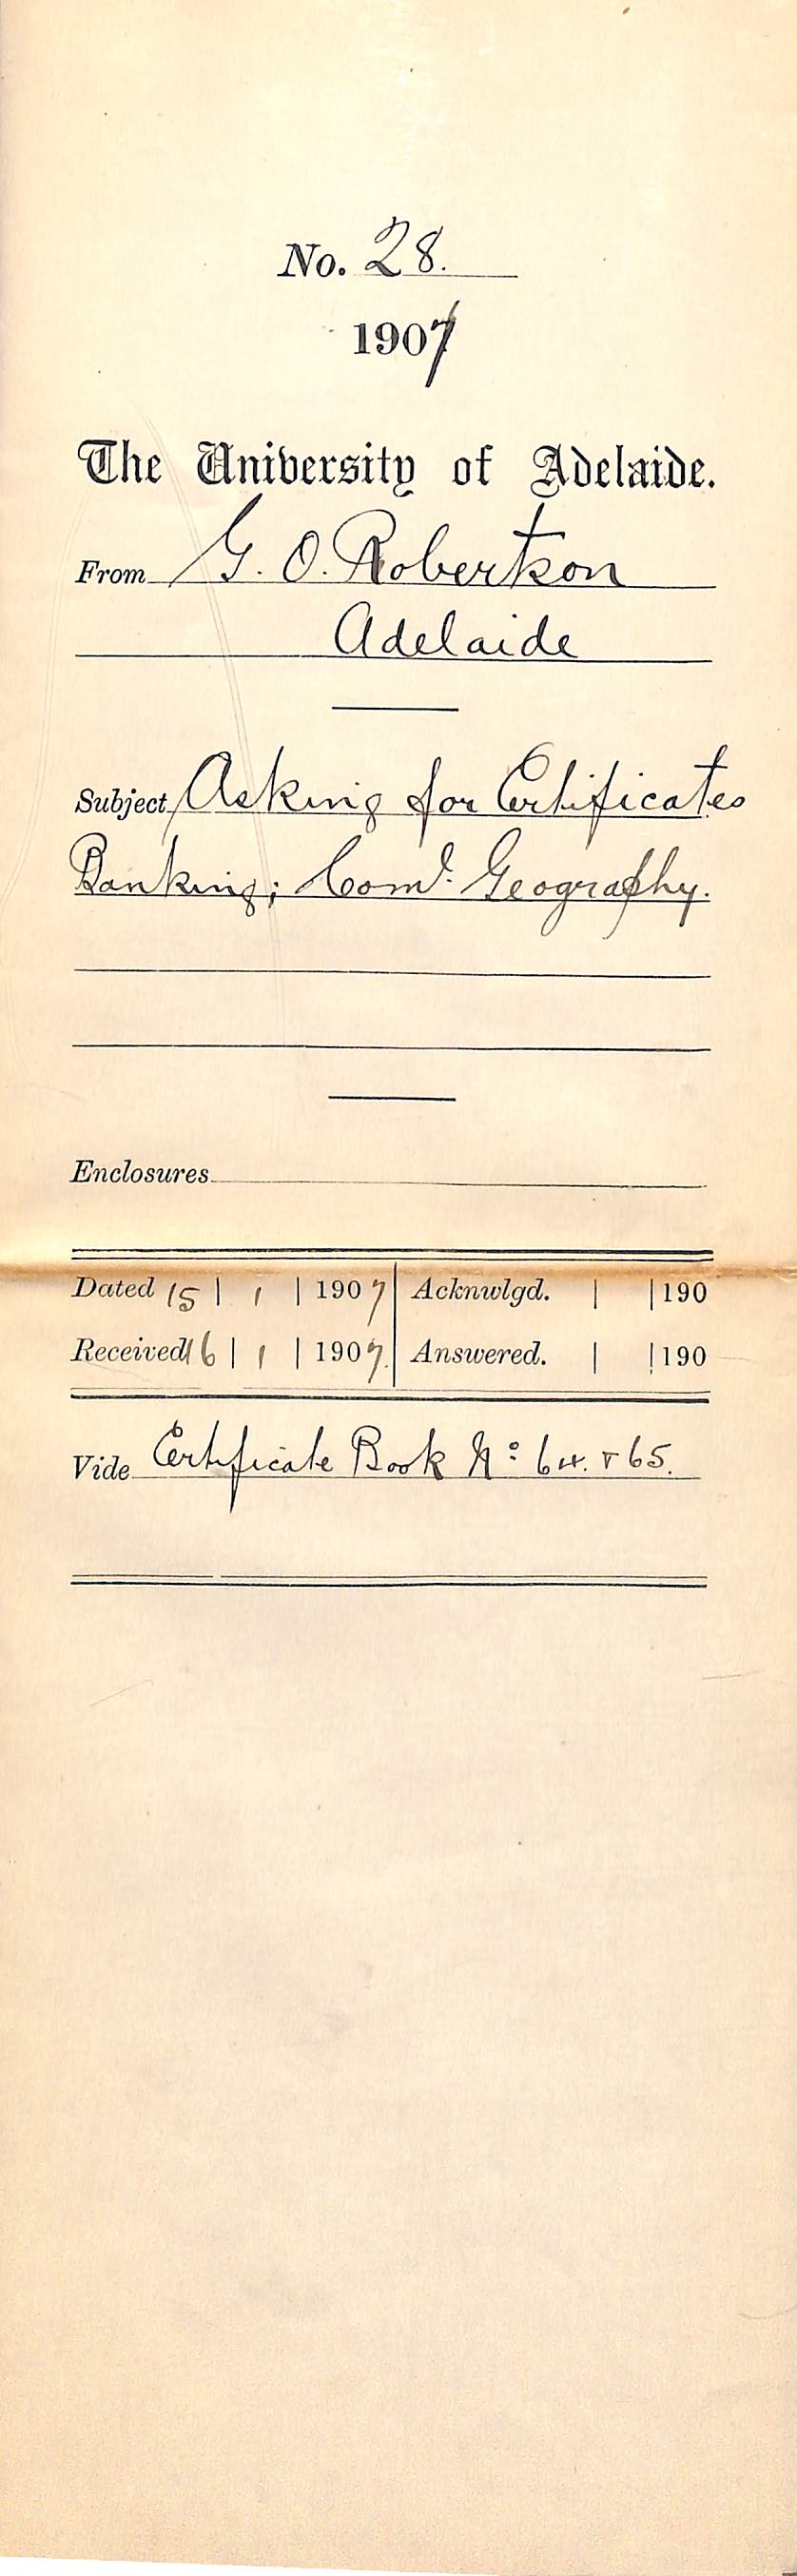 No. 28.
1907
The University of Adelaide.
From G. O. Robertson
Adelaide
Subject Asking for Certificates
Banking; Coml. Geography.
Enclosures
Dated 15 | 1 | 1907 Acknwlgd. | | 190
Received 16 | 1 | 1907. Answered. | | 190
Vide Certificate Book No 64. & 65.